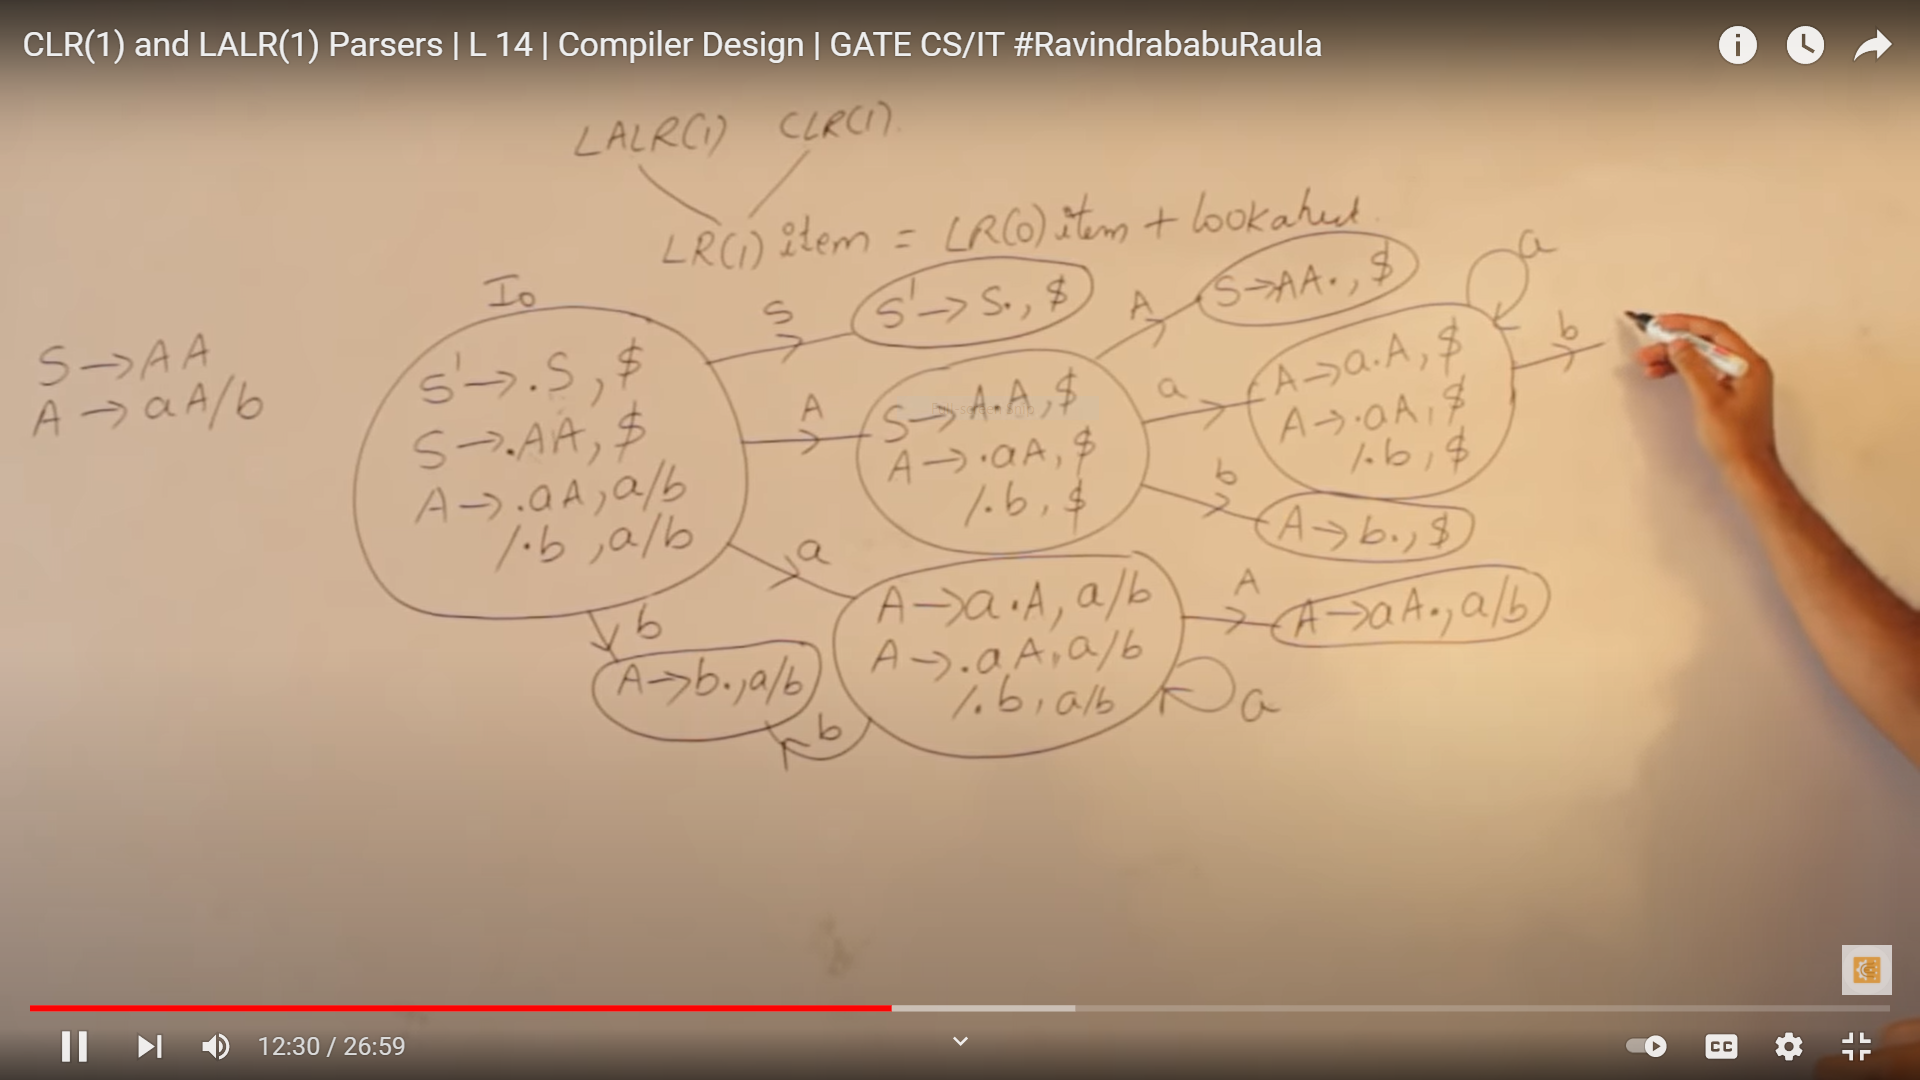 CLR(1) and LALR(1) Parsers | L 14 | Compiler Design | GATE CS/IT #RavindrababuRaula
LALR(1) CLR(1).
LR(1) item = LR(0) item +
S → AA
A → aA/b
I0
S' → .S , $
S → .AA , $
A → .aA , a/b
/.b , a/b
S
S' → S. , $
A
S → A.A , $
A → .aA , $
/.b , $
A
S → AA. , $
a
A → a.A , $
A → .aA , $
/.b , $
a
b
b
A → b. , $
a
A → a.A , a/b
A → .aA , a/b
/.b , a/b
A
A → aA. , a/b
a
b
A → b. , a/b
b
12:30 / 26:59
CC